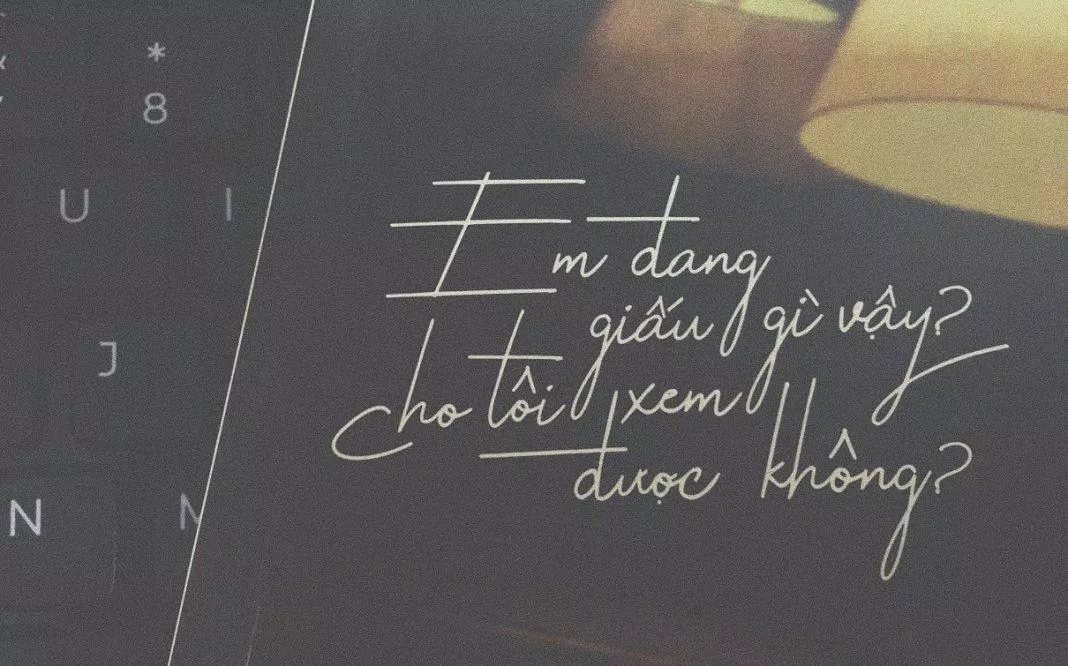 *
8
U I
J
N M
Em đang
giấu gì vậy?
Cho tôi xem
được không?